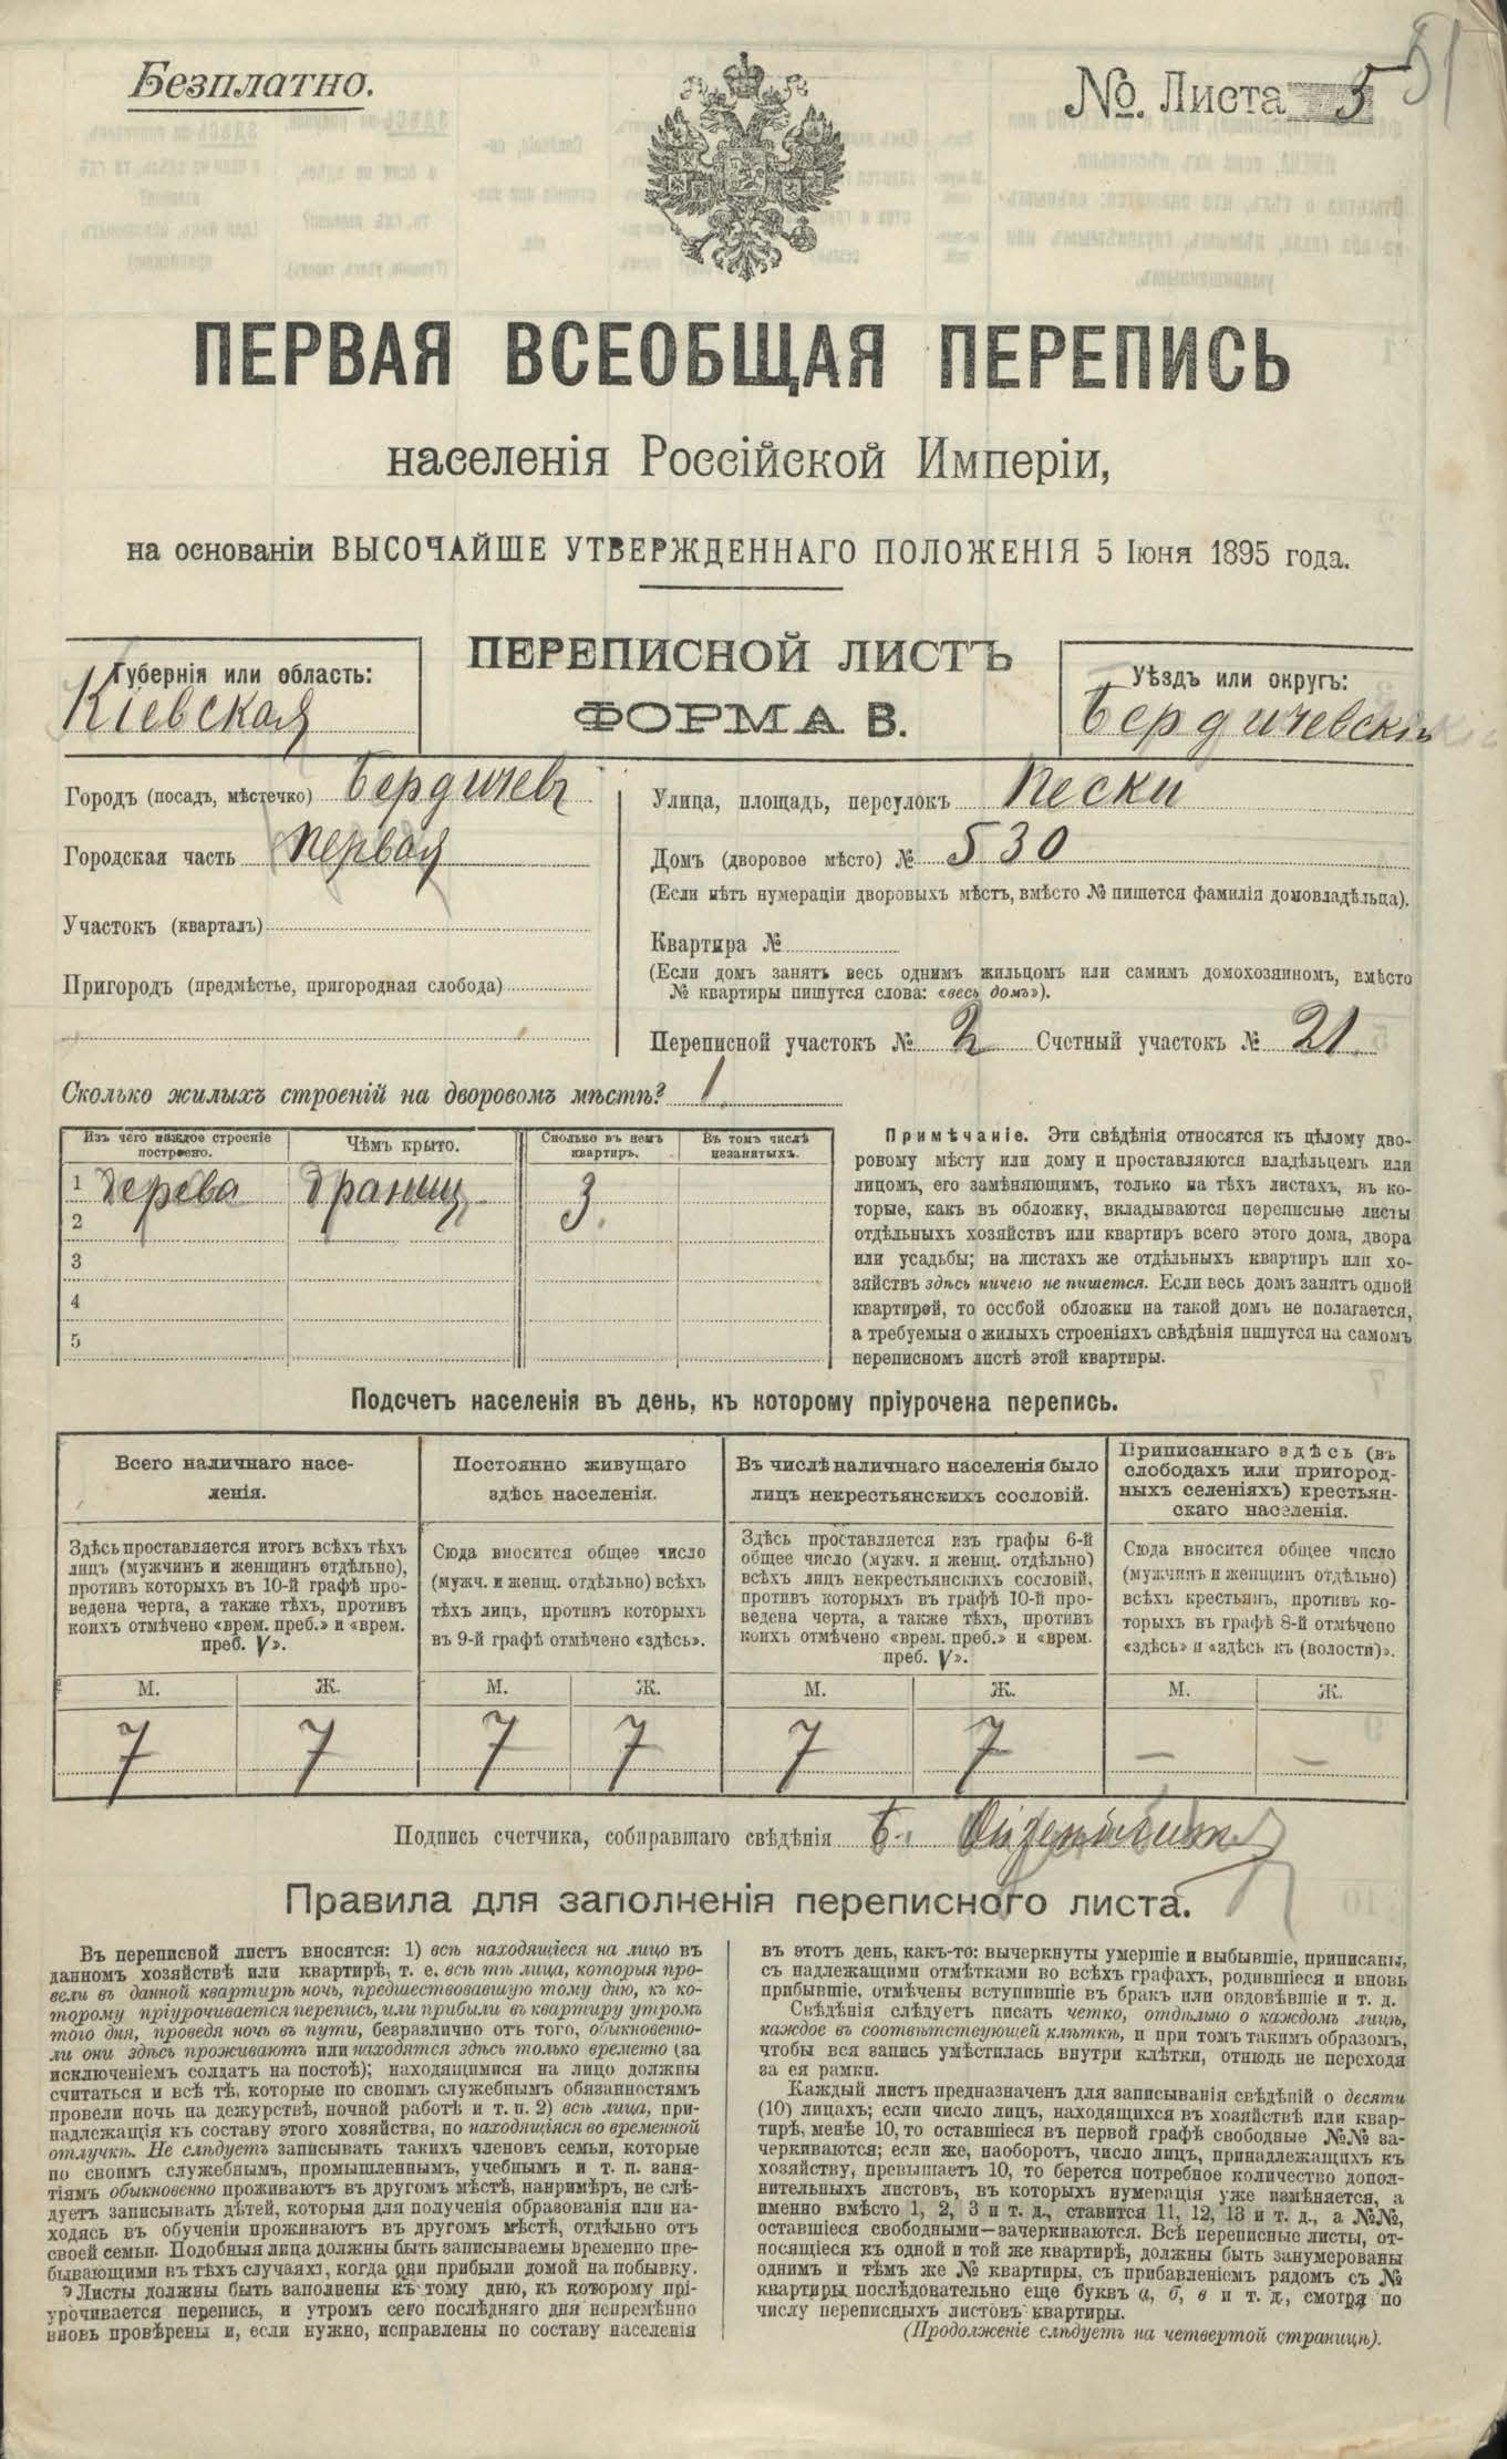 Безплатно.
№. Листа 5
51
ПЕРВАЯ ВСЕОБЩАЯ ПЕРЕПИСЬ
населенія Россійской Имперіи,
на основаніи ВЫСОЧАЙШЕ УТВЕРЖДЕННАГО ПОЛОЖЕНІЯ 5 Іюня 1895 года.
ПЕРЕПИСНОЙ ЛИСТЪ
ФОРМА В.
Губернія или область:
Кіевская
Уѣздъ или округъ:
Бердичевскій
Городъ (посадъ, мѣстечко) Бердичевъ
Городская часть Первая
Участокъ (кварталъ)
Пригородъ (предмѣстье, пригородная слобода)
Улица, площадь, переулокъ Пески
Домъ (дворовое мѣсто) № 530
(Если нѣтъ нумераціи дворовыхъ мѣстъ, вмѣсто № пишется фамилія домовладѣльца).
Квартира №
(Если домъ занятъ весь однимъ жильцомъ или самимъ домохозяиномъ, вмѣсто
№ квартиры пишутся слова: «весь домъ»).
Переписной участокъ № 2 Счетный участокъ № 21
Сколько жилыхъ строеній на дворовомъ мѣстѣ? 1
Изъ чего каждое строеніе построено.
Чѣмъ крыто.
Сколько въ немъ квартиръ.
Въ томъ числѣ незанятыхъ.
1 дерева драниц 3
2
3
4
5
Примѣчаніе. Эти свѣдѣнія относятся къ цѣлому дво-
ровому мѣсту или дому и проставляются владѣльцемъ или
лицомъ, его замѣняющимъ, только на тѣхъ листахъ, въ ко-
торые, какъ въ обложку, вкладываются переписные листы
отдѣльныхъ хозяйствъ или квартиръ всего этого дома, двора
или усадьбы; на листахъ же отдѣльныхъ квартиръ или хо-
зяйствъ здѣсь ничего не пишется. Если весь домъ занятъ одной
квартирой, то особой обложки на такой домъ не полагается,
а требуемыя о жилыхъ строеніяхъ свѣдѣнія пишутся на самомъ
переписномъ листѣ этой квартиры.
Подсчетъ населенія въ день, къ которому пріурочена перепись.
Всего наличнаго насе-
ленія.
Здѣсь проставляется итогъ всѣхъ тѣхъ
лицъ (мужчинъ и женщинъ отдѣльно),
противъ которыхъ въ 10-й графѣ про-
ведена черта, а также тѣхъ, противъ
коихъ отмѣчено «врем. преб.» и «врем.
преб. V».
Постоянно живущаго
здѣсь населенія.
Сюда вносится общее число
(мужч. и женщ. отдѣльно) всѣхъ
тѣхъ лицъ, противъ которыхъ
въ 9-й графѣ отмѣчено «здѣсь».
Въ числѣ наличнаго населенія было
лицъ некрестьянскихъ сословій.
Здѣсь проставляется изъ графы 6-й
общее число (мужч. и женщ. отдѣльно)
всѣхъ лицъ некрестьянскихъ сословій,
противъ которыхъ въ графѣ 10-й про-
ведена черта, а также тѣхъ, противъ
коихъ отмѣчено «врем. преб.» и «врем.
преб. V».
Приписаннаго здѣсь (въ
слободахъ или пригород-
ныхъ селеніяхъ) крестьян-
скаго населенія.
Сюда вносится общее число
(мужчинъ и женщинъ отдѣльно)
всѣхъ крестьянъ, противъ ко-
торыхъ въ графѣ 8-й отмѣчено
«здѣсь» и «здѣсь къ (волости)».
М. Ж. М. Ж. М. Ж. М. Ж.
7 7 7 7 7 7 — —
Подпись счетчика, собиравшаго свѣдѣнія Б.
Правила для заполненія переписного листа.
Въ переписной листъ вносятся: 1) всѣ находящіеся на лицо въ
данномъ хозяйствѣ или квартирѣ, т. е. всѣ тѣ лица, которыя про-
вели въ данной квартирѣ ночь, предшествовавшую тому дню, къ ко-
торому пріурочивается перепись, или прибыли въ квартиру утромъ
того дня, проведя ночь въ пути, безразлично отъ того, обыкновенно-
ли они здѣсь проживаютъ или находятся здѣсь только временно (за
исключеніемъ солдатъ на постоѣ); находящимися на лицо должны
считаться и всѣ тѣ, которые по своимъ служебнымъ обязанностямъ
провели ночь на дежурствѣ, ночной работѣ и т. п. 2) всѣ лица, при-
надлежащія къ составу этого хозяйства, но находящіяся во временной
отлучкѣ. Не слѣдуетъ записывать такихъ членовъ семьи, которые
по своимъ служебнымъ, промышленнымъ, учебнымъ и т. п. заня-
тіямъ обыкновенно проживаютъ въ другомъ мѣстѣ, напримѣръ, не слѣ-
дуетъ записывать дѣтей, которыя для полученія образованія или на-
ходясь въ обученіи проживаютъ въ другомъ мѣстѣ, отдѣльно отъ
своей семьи. Подобныя лица должны быть записываемы временно пре-
бывающими въ тѣхъ случаяхъ, когда они прибыли домой на побывку.
Листы должны быть заполнены къ тому дню, къ которому прі-
урочивается перепись, и утромъ сего послѣдняго дня непремѣнно
вновь провѣрены и, если нужно, исправлены по составу населенія
въ этотъ день, какъ-то: вычеркнуты умершіе и выбывшіе, приписаны,
съ надлежащими отмѣтками во всѣхъ графахъ, родившіеся и вновь
прибывшіе, отмѣчены вступившіе въ бракъ или овдовѣвшіе и т. д.
Свѣдѣнія слѣдуетъ писать четко, отдѣльно о каждомъ лицѣ,
каждое въ соотвѣтствующей клѣткѣ, и при томъ такимъ образомъ,
чтобы вся запись умѣстилась внутри клѣтки, отнюдь не переходя
за ея рамки.
Каждый листъ предназначенъ для записыванія свѣдѣній о десяти
(10) лицахъ; если число лицъ, находящихся въ хозяйствѣ или квар-
тирѣ, менѣе 10, то оставшіеся въ первой графѣ свободные №№ за-
черкиваются; если же, наоборотъ, число лицъ, принадлежащихъ къ
хозяйству, превышаетъ 10, то берется потребное количество допол-
нительныхъ листовъ, въ которыхъ нумерація уже измѣняется, а
именно вмѣсто 1, 2, 3 и т. д., ставится 11, 12, 13 и т. д., а №№,
оставшіеся свободными—зачеркиваются. Всѣ переписные листы, от-
носящіеся къ одной и той же квартирѣ, должны быть занумерованы
однимъ и тѣмъ же № квартиры, съ прибавленіемъ рядомъ съ №
квартиры послѣдовательно еще буквъ а, б, в и т. д., смотря по
числу переписныхъ листовъ квартиры.
(Продолженіе слѣдуетъ на четвертой страницѣ).